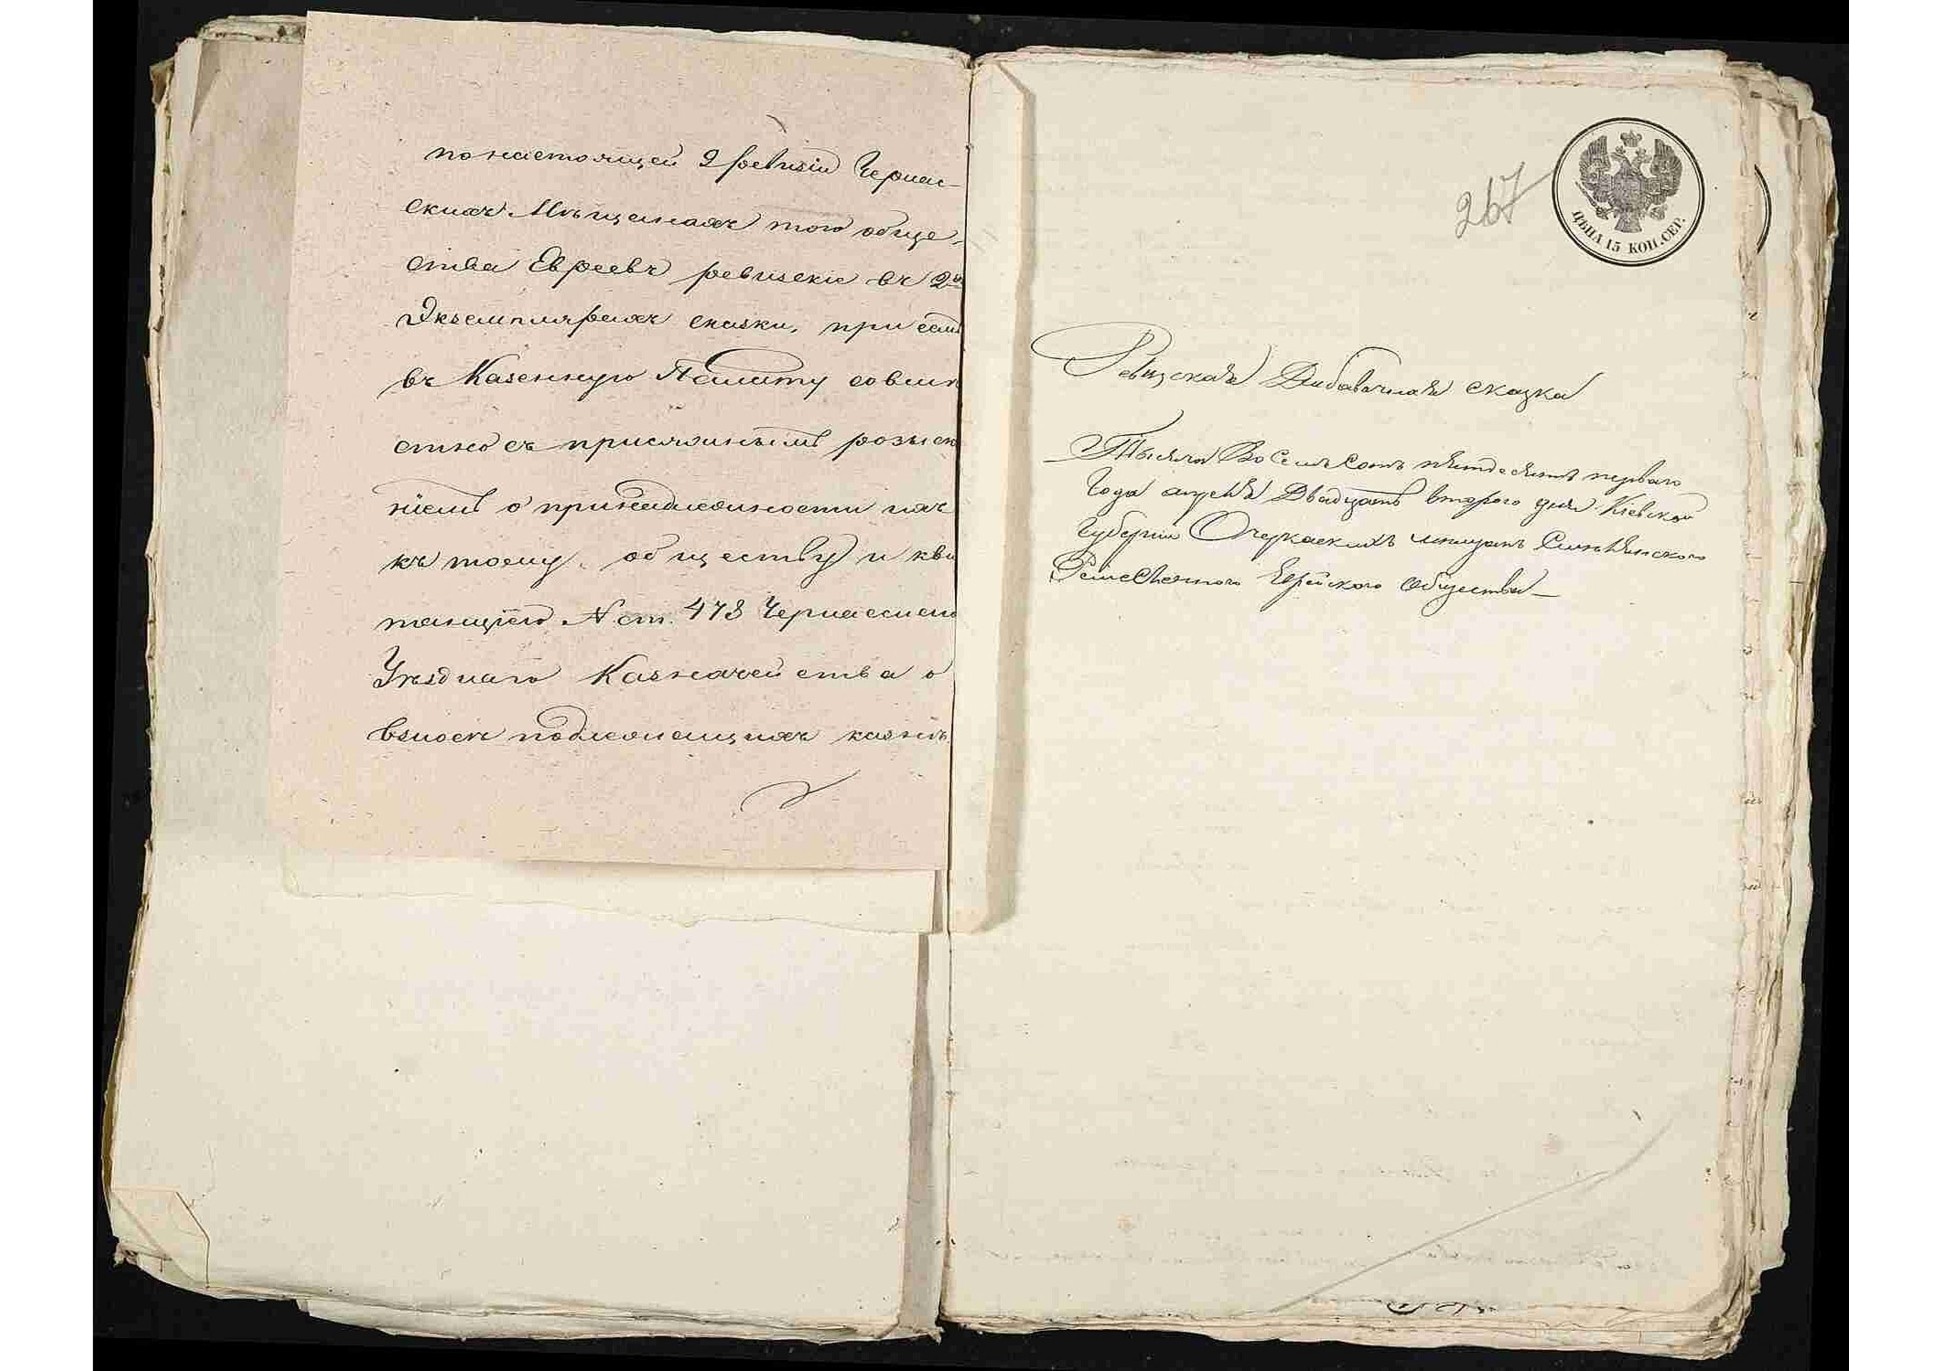 по настоящей 9 ревизіи Черкас-
скихъ Мѣщанахъ того обще-
ства Евреевъ ревизскіе въ 2хъ
Экземплярахъ сказки, при семъ
въ Казенную Палату совмѣ
стно съ присяжнымъ розыска
ніемъ о принадлежности ихъ
къ тому обществу и кви
танціею № ст. 478 Черкасскаго
Уѣзднаго Казначейства о
взносѣ подлежащихъ казнѣ
267
ЦѢНА 15 КОП. СЕР.
Ревизская Добавочная сказка
Тысяча Восемьсотъ пятдесятъ перваго
Года апреля Двадцать второго дня Кіевской
Губерніи Черкаскихъ мещанъ
Еврейского Общества